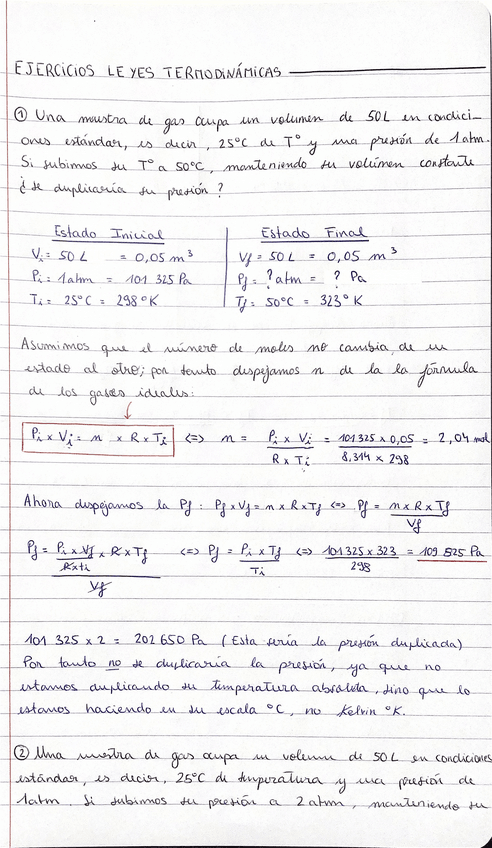 EJERCICIOS LEYES TERMODINÁMICAS
① Una muestra de gas ocupa un volumen de 50L en condici-
ones estándar, es decir, 25°C de T° y una presión de 1atm.
Si subimos su T° a 50°C, manteniendo su volúmen constante
¿se duplicaría su presión?
Estado Inicial
Vi = 50 L = 0,05 m³
Pi = 1atm = 101 325 Pa
Ti = 25°C = 298°K
Estado Final
Vf = 50 L = 0,05 m³
Pf = ? atm = ? Pa
Tf = 50°C = 323°K
Asumimos que el número de moles no cambia, de un
estado al otro; por tanto despejamos n de la la fórmula
de los gases ideales:
Pi x Vi = n x R x Ti <=> n = Pi x Vi / R x Ti = 101325 x 0,05 / 8,314 x 298 = 2,04 mol
Ahora despejamos la Pf : Pf x Vf = n x R x Tf <=> Pf = n x R x Tf / Vf
Pf = Pi x Vf / R x ti x R x Tf / Vf <=> Pf = Pi x Tf / Ti <=> 101325 x 323 / 298 = 109 825 Pa
101 325 x 2 = 202 650 Pa (Esta sería la presión duplicada)
Por tanto no se duplicaría la presión, ya que no
estamos duplicando su temperatura absoluta, sino que lo
estamos haciendo en su escala °C, no Kelvin °K.
② Una muestra de gas ocupa un volumen de 50L en condiciones
estándar, es decir, 25°C de temperatura y una presión de
1atm. Si subimos su presión a 2atm, manteniendo su